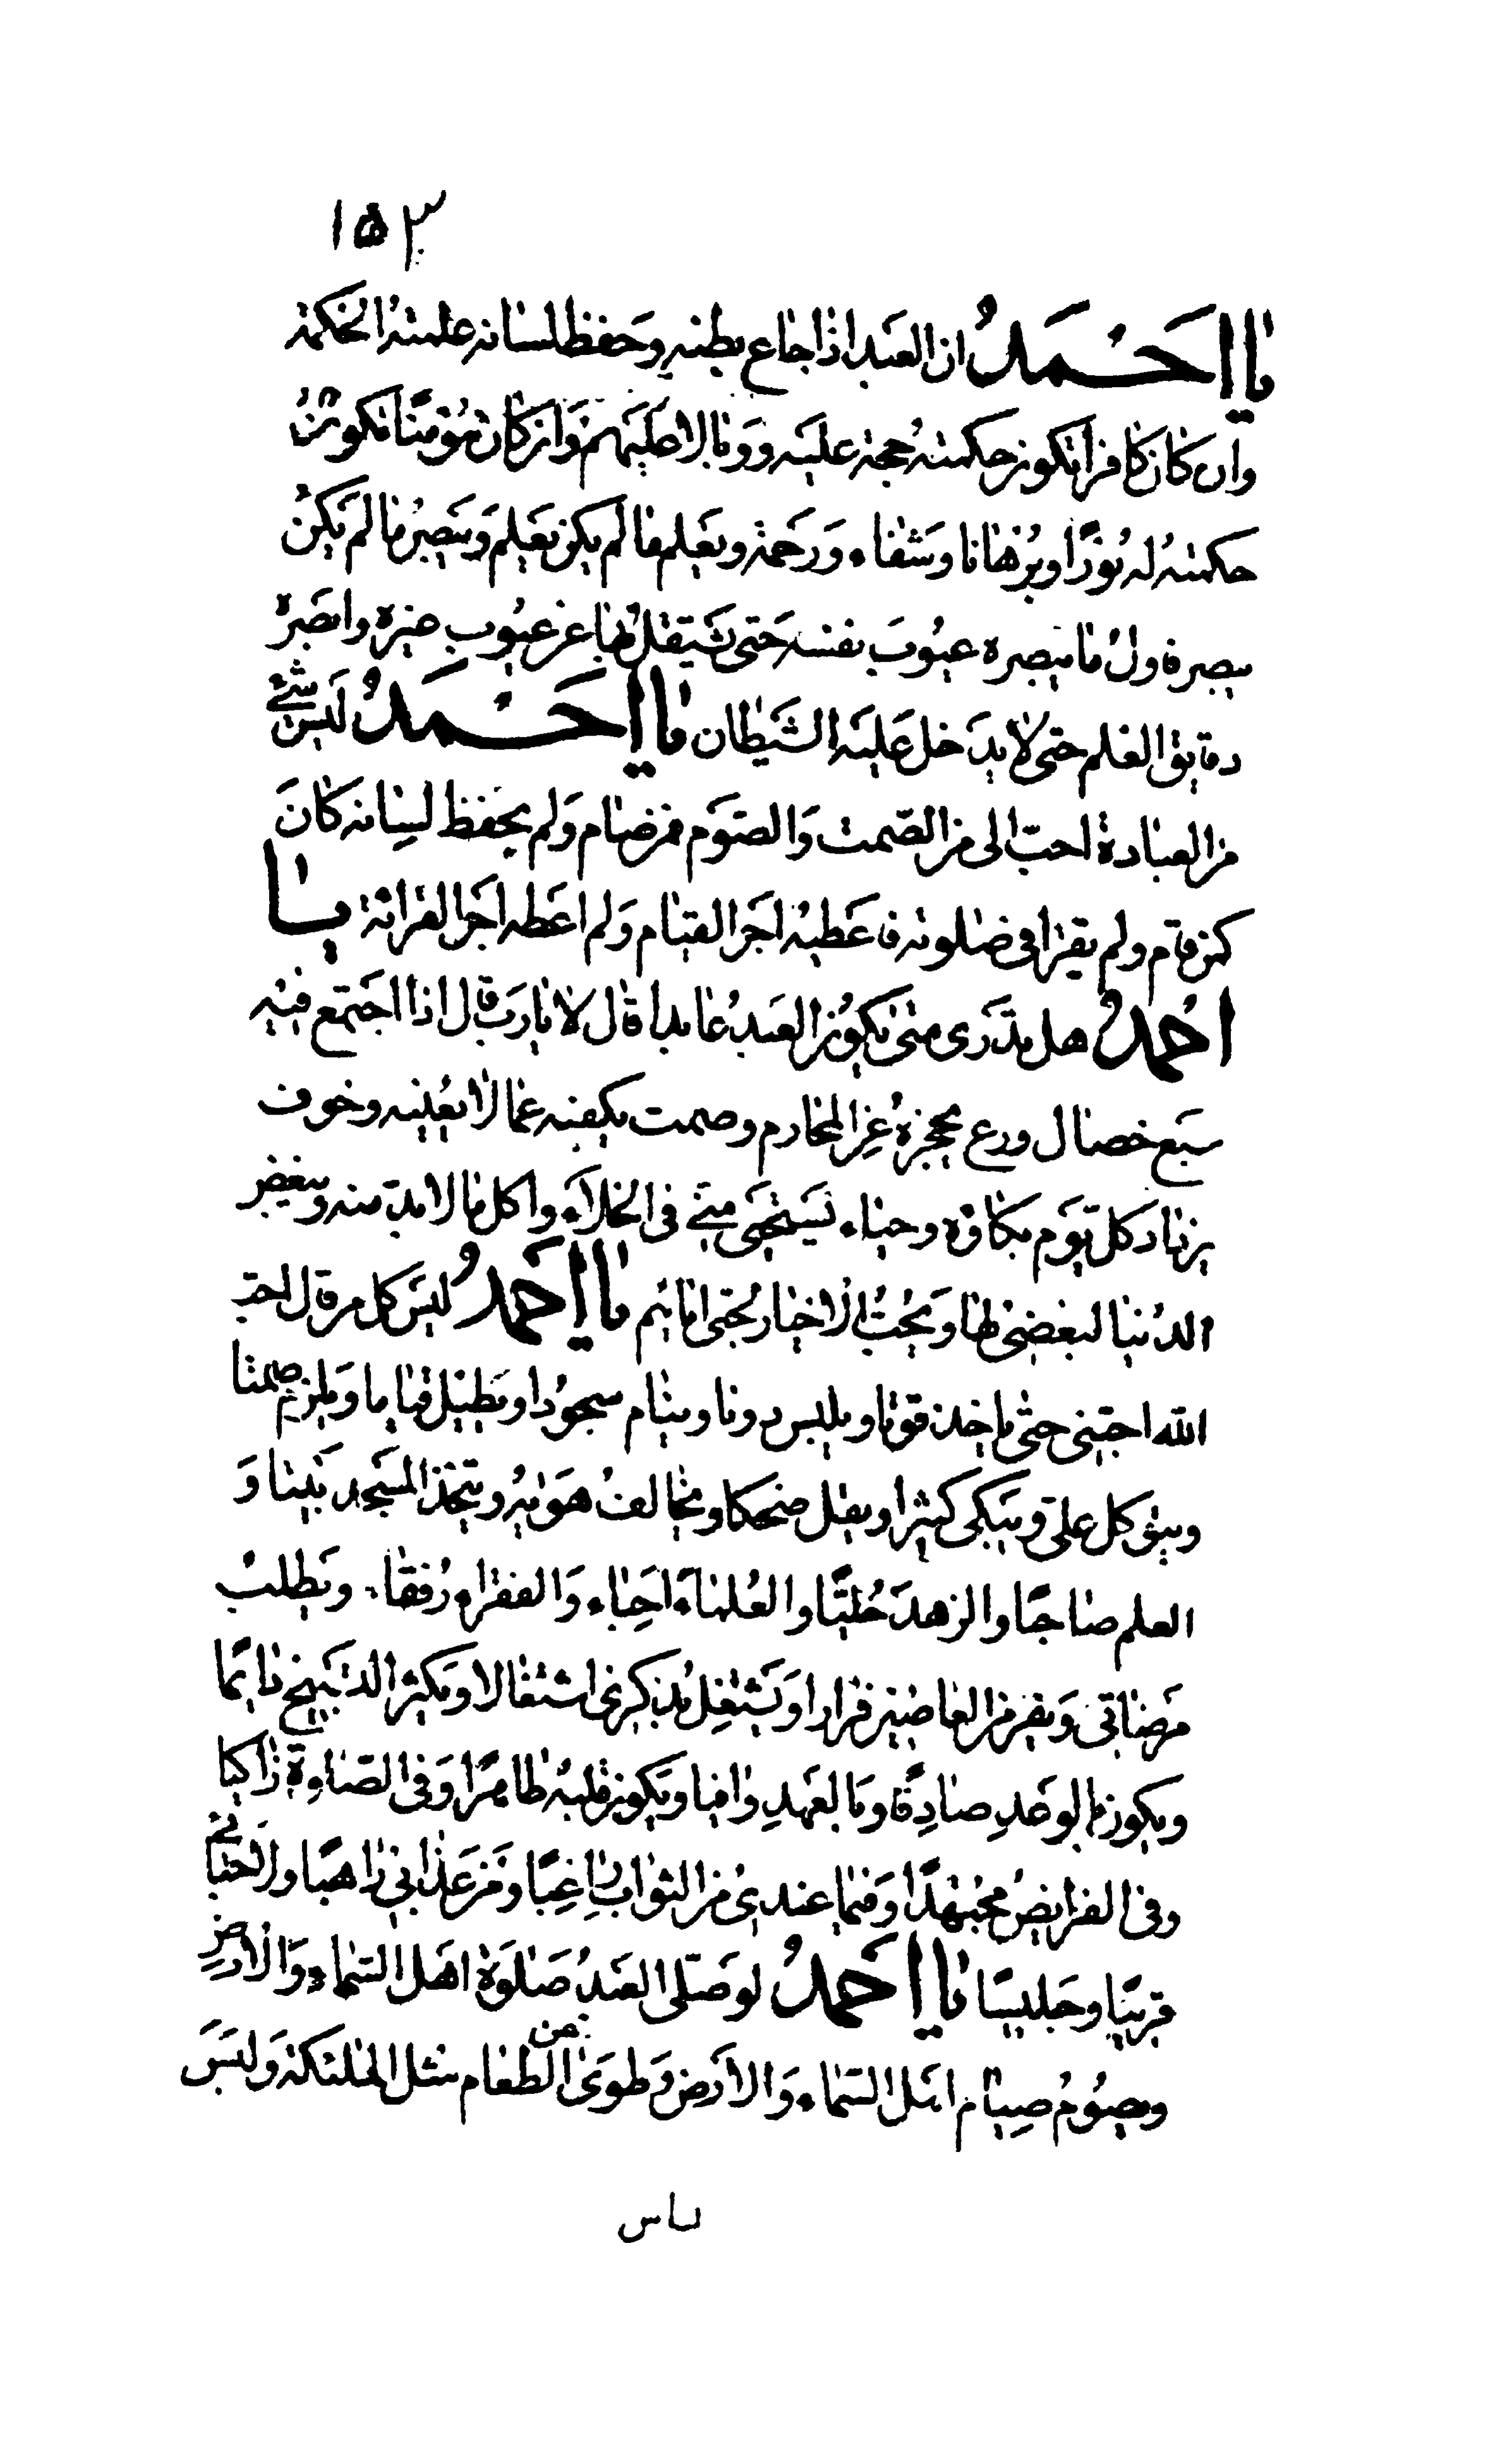 ۱۵۳
يا احمد ان العبد اذا جاع بطنه وحفظ لسانه علمته الحكمة
وان كان كافرا تكون حكمته حجة عليه ووبالا وان كان مؤمنا تكون
حكمته له نورا وبرهانا وشفاء ورحمة ويعلم ما لم يكن يعلم ويبصر ما لم يكن
يبصر فاول ما يبصره عيوب نفسه حتى يشتغل بها عن عيوب غيره وابصره
دقايق العلم حتى لا يدخل عليه الشيطان يا احمد ليس شئ
من العبادة احب الى من الصمت والصوم فمن صام ولم يحفظ لسانه كان
كمن قام ولم يقرا في صلوته فاعطيه اجر القيام ولم اعطه اجر القرائة يا
احمد هل تدرى متى يكون العبد عابدا قال لا يا رب قال اذا اجتمع فيه
سبع خصال ورع يحجزه عن المحارم وصمت يكفيه عما لا يعنيه وخوف
يزداد كل يوم بكاؤه وحياء يستحيى منى فى الخلاء واكل ما لا بد منه ويبغض
الدنيا لبغضى لها ويحب الاخيار لحبى اياهم يا احمد ليس كل من قال احب
الله احبنى حتى ياخذ قوتا ويلبس دونا وينام سجودا ويطيل قياما ويلزم صمتا
ويتوكل على ويبكى كثيرا ويقل ضحكا ويخالف هواه ويتخذ المسجد بيتا و
العلم صاحبا والزهد جليسا والعلماء احباء والفقراء رفقاء ويطلب
مرضاتى ويفر من العاصين فرارا ويشتغل بذكرى اشتغالا ويكثر التسبيح دائما
ويكون بالوعد صادقا وبالعهد وافيا ويكون قلبه طاهرا وفى الصلوة زاكيا
وفى الفرايض مجتهدا وفيما عندى من الثواب راغبا ومن عذابى راهبا ولاحبائى
قرينا وجليسا يا احمد لو صلى العبد صلوة اهل السماء والارض
ويصوم صيام اهل السماء والارض وطوى من الطعام مثل الملئكة ولبس
لباس